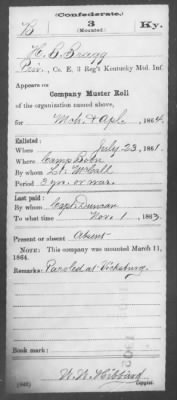 (Confederate.)
B 3 Ky.
(Mounted)
H. C. Bragg
Priv., Co. E, 3 Reg't Kentucky Mtd. Inf.
Appears on
Company Muster Roll
of the organization named above,
for Mch & Apl, 1864.
Enlisted:
When July 23, 1861.
Where Camp Boon
By whom Lt. McCall
Period 3 yrs. or war.
Last paid:
By whom Capt. Duncan
To what time Nov. 1, 1863.
Present or absent Absent
NOTE: This company was mounted March 11,
1864.
Remarks: Paroled at Vicksburg.
Book mark:
W. W. Hibbard
(642) Copyist.